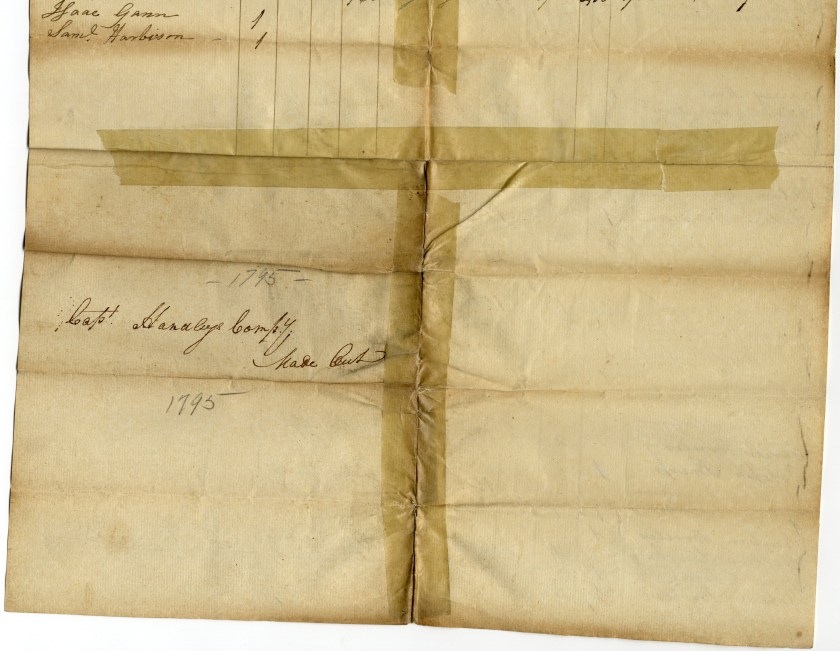 Isaac Gann 1
Saml. Harbison - 1
- 1795 -
Capt. Handleys Compy.
Made Out
1795